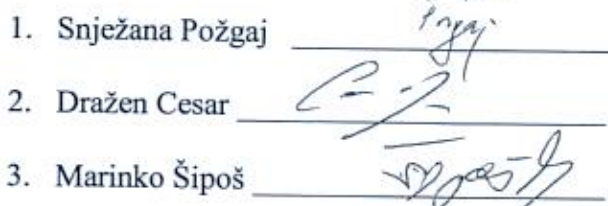 1. Snježana Požgaj
2. Dražen Cesar
3. Marinko Šipoš